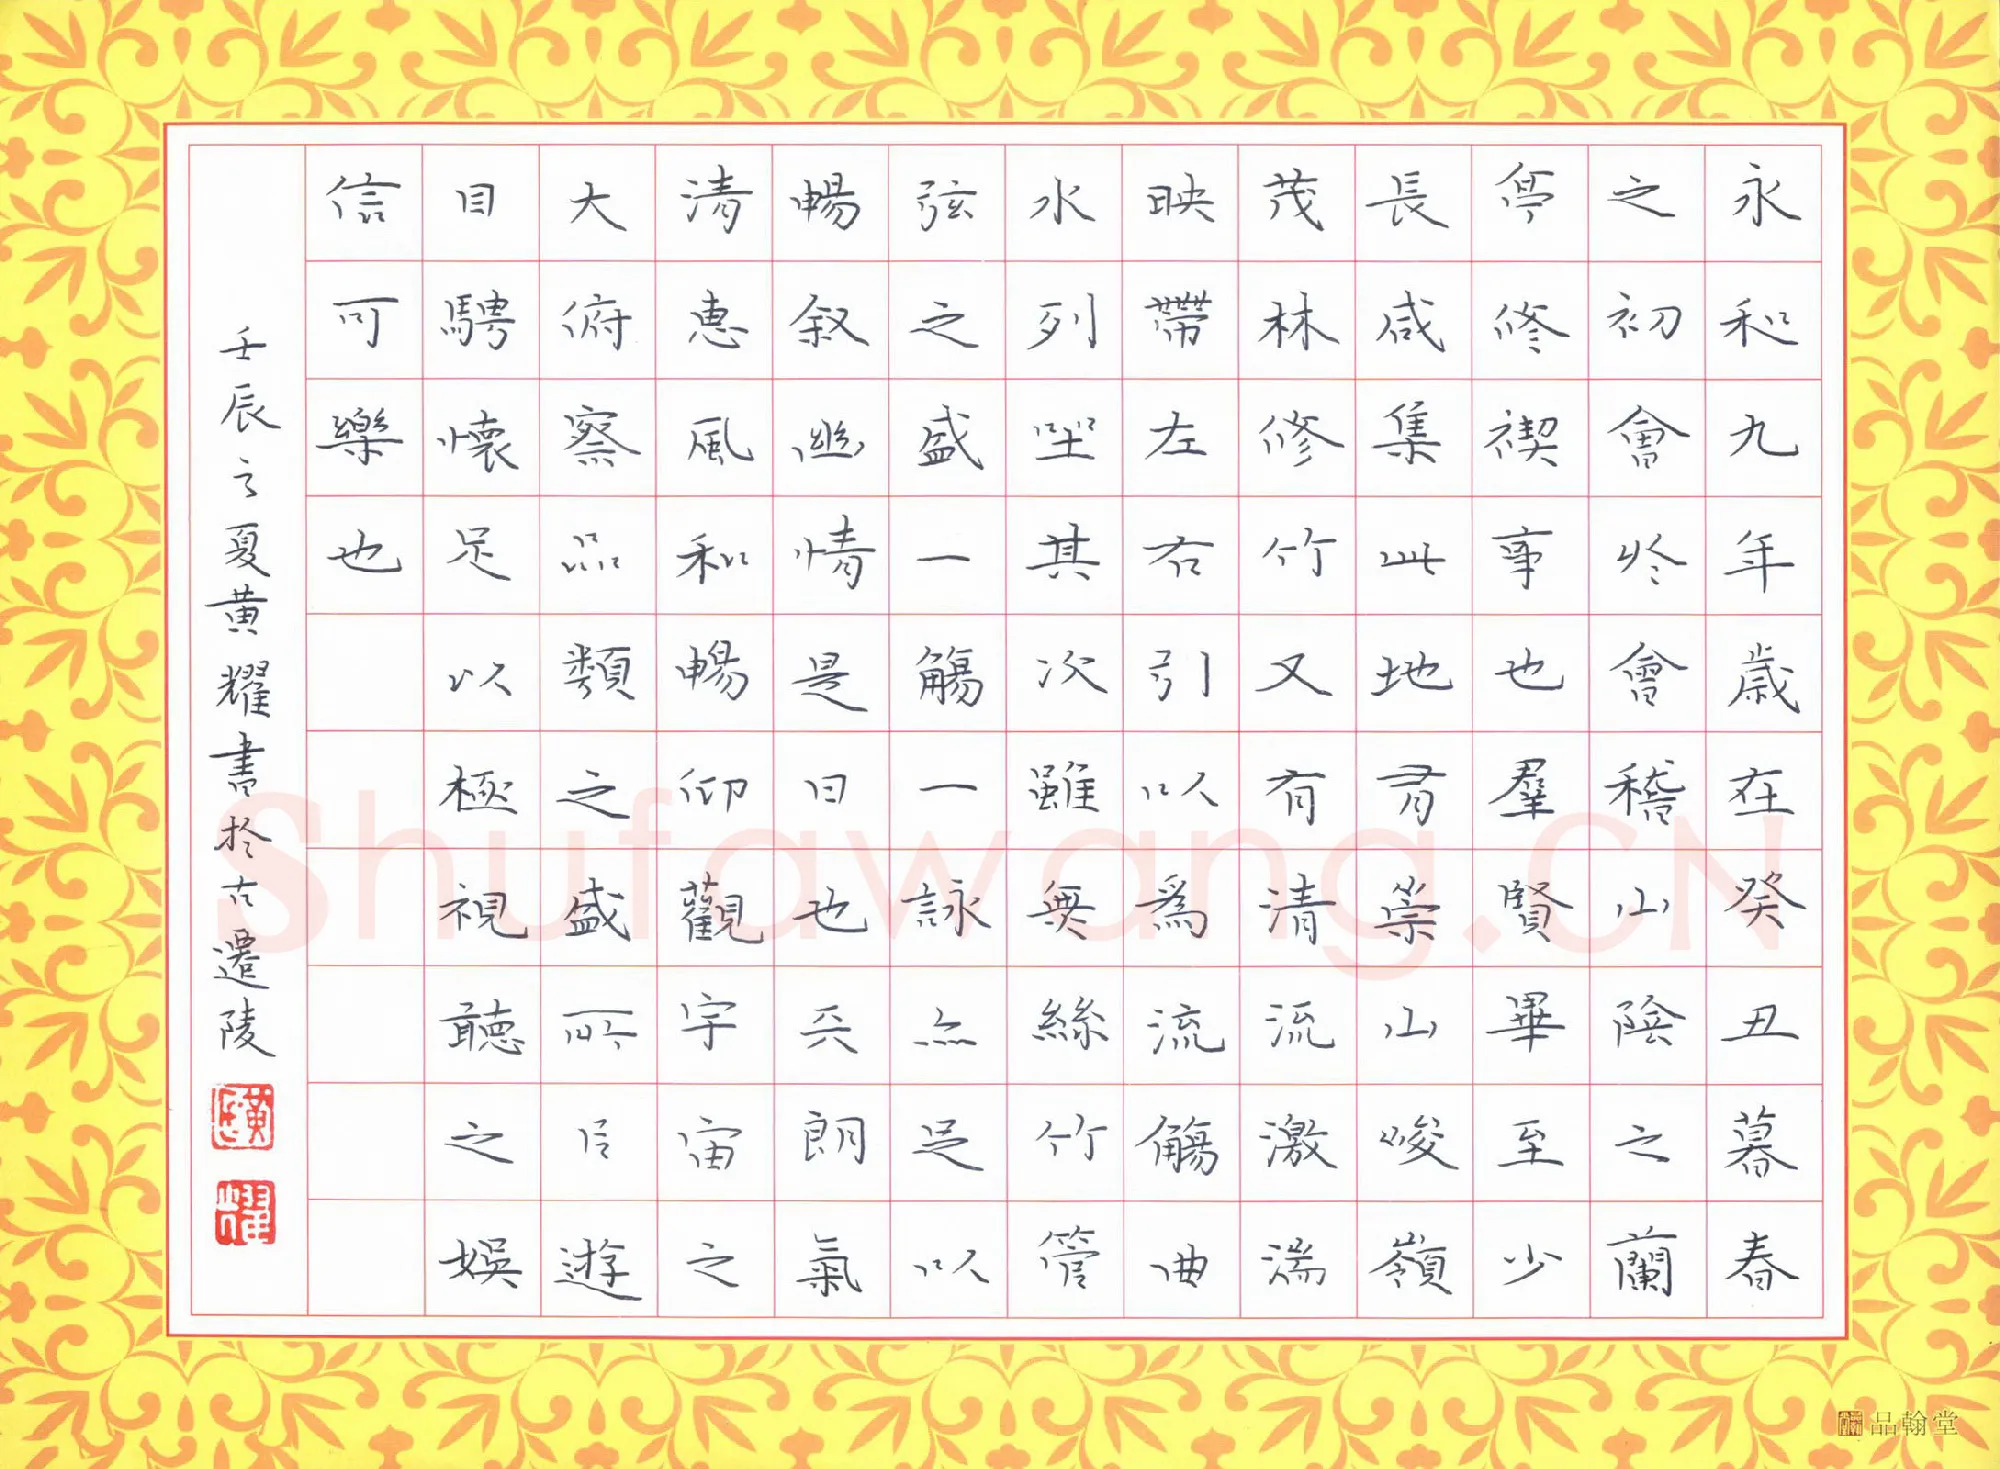 永和九年歲在癸丑暮春
之初會於會稽山陰之蘭
亭修禊事也羣賢畢至少
長咸集此地有崇山峻嶺
茂林修竹又有清流激湍
映帶左右引以爲流觴曲
水列坐其次雖無絲竹管
弦之盛一觴一詠亦足以
暢叙幽情是日也天朗氣
清惠風和暢仰觀宇宙之
大俯察品類之盛所以遊
目騁懷足以極視聽之娛
信可樂也
壬辰之夏黄耀書於古遷陵
耀
Shufawang.CN
品翰堂